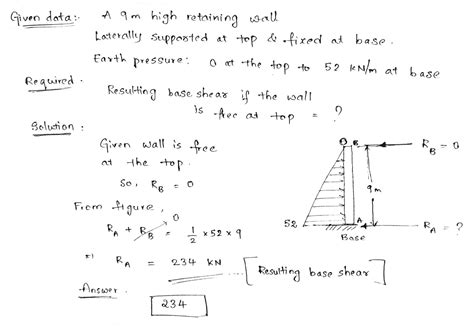 Given data:- A 9m high retaining wall
Laterally supported at top & fixed at base.
Earth pressure: 0 at the top to 52 kN/m at base
Required - Resulting base shear if the wall
is free at top = ?
Solution :
Given wall is free
at the top.
So, R_B = 0
From figure,
0
R_A + R_B = 1/2 × 52 × 9
⇒ R_A = 234 KN [Resulting base shear]
Answer.
234
0 B R_B = 0
9m
52 A R_A = ?
Base